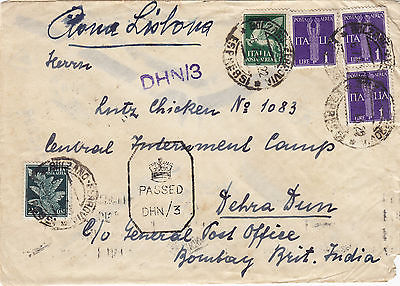 Roma Lisbona
Herrn
DHN/3
Lutz Chicken No 1083
Central Internment Camp
Dehra Dun
C/o General Post Office
Bombay Brit. India
PASSED
DHN/3
ITALIA
POSTA AEREA
POSTA AEREA
ITALIA
1
LIRE
POSTA AEREA
ITALIA
1
LIRE
ITALIA
1
LIRE